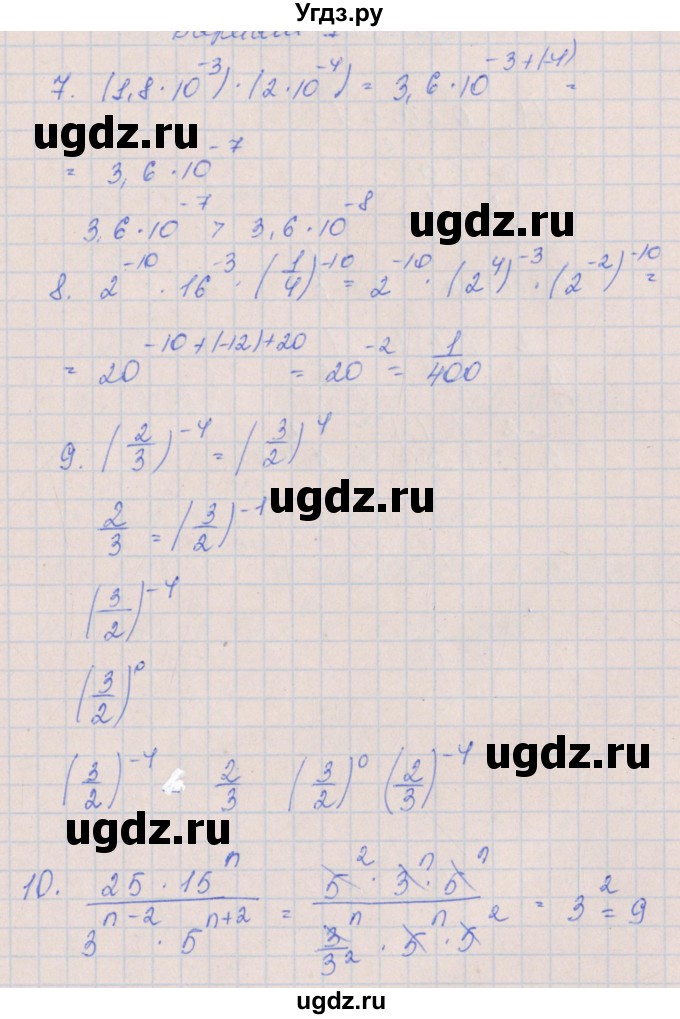 Угдз.ру
Вариант
7. (1,8 · 10^-3) · (2 · 10^-4) = 3,6 · 10^-3+(-4) =
ugdz.ru
= 3,6 · 10^-7
3,6 · 10^-7 > 3,6 · 10^-8
ugdz.ru
8. 2^-10 · 16^-3 · (1/4)^-10 = 2^-10 · (2^4)^-3 · (2^-2)^-10 =
= 20^-10+(-12)+20 = 20^-2 = 1/400
9. (2/3)^-4 = (3/2)^4
ugdz.ru
2/3 = (3/2)^-1
(3/2)^-4
(3/2)^0
(3/2)^-4 2/3 (3/2)^0 (2/3)^-4
ugdz.ru
ugdz.ru
10. 25 · 15^n / 3^n-2 · 5^n+2 = 5^2 · 3^n · 5^n / 3^n/3^2 · 5^n · 5^2 = 3^2 = 9
ugdz.ru